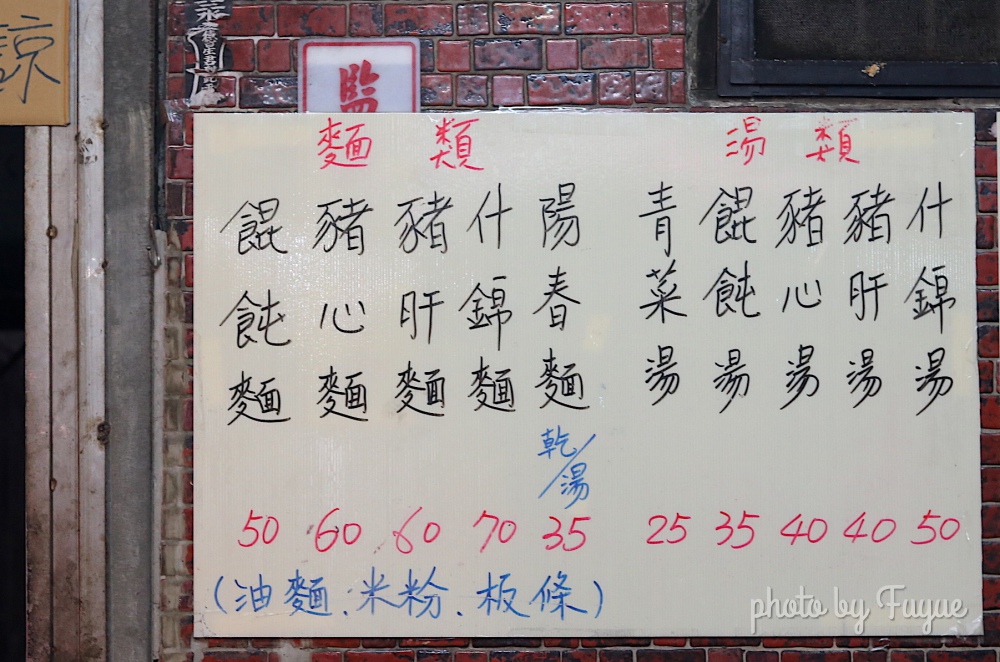 諒
監
麵類
餛飩麵
豬心麵
豬肝麵
什錦麵
陽春麵
乾/湯
50 60 60 70 35
(油麵、米粉、板條)
湯類
青菜湯
餛飩湯
豬心湯
豬肝湯
什錦湯
25 35 40 40 50
photo by Fuyue